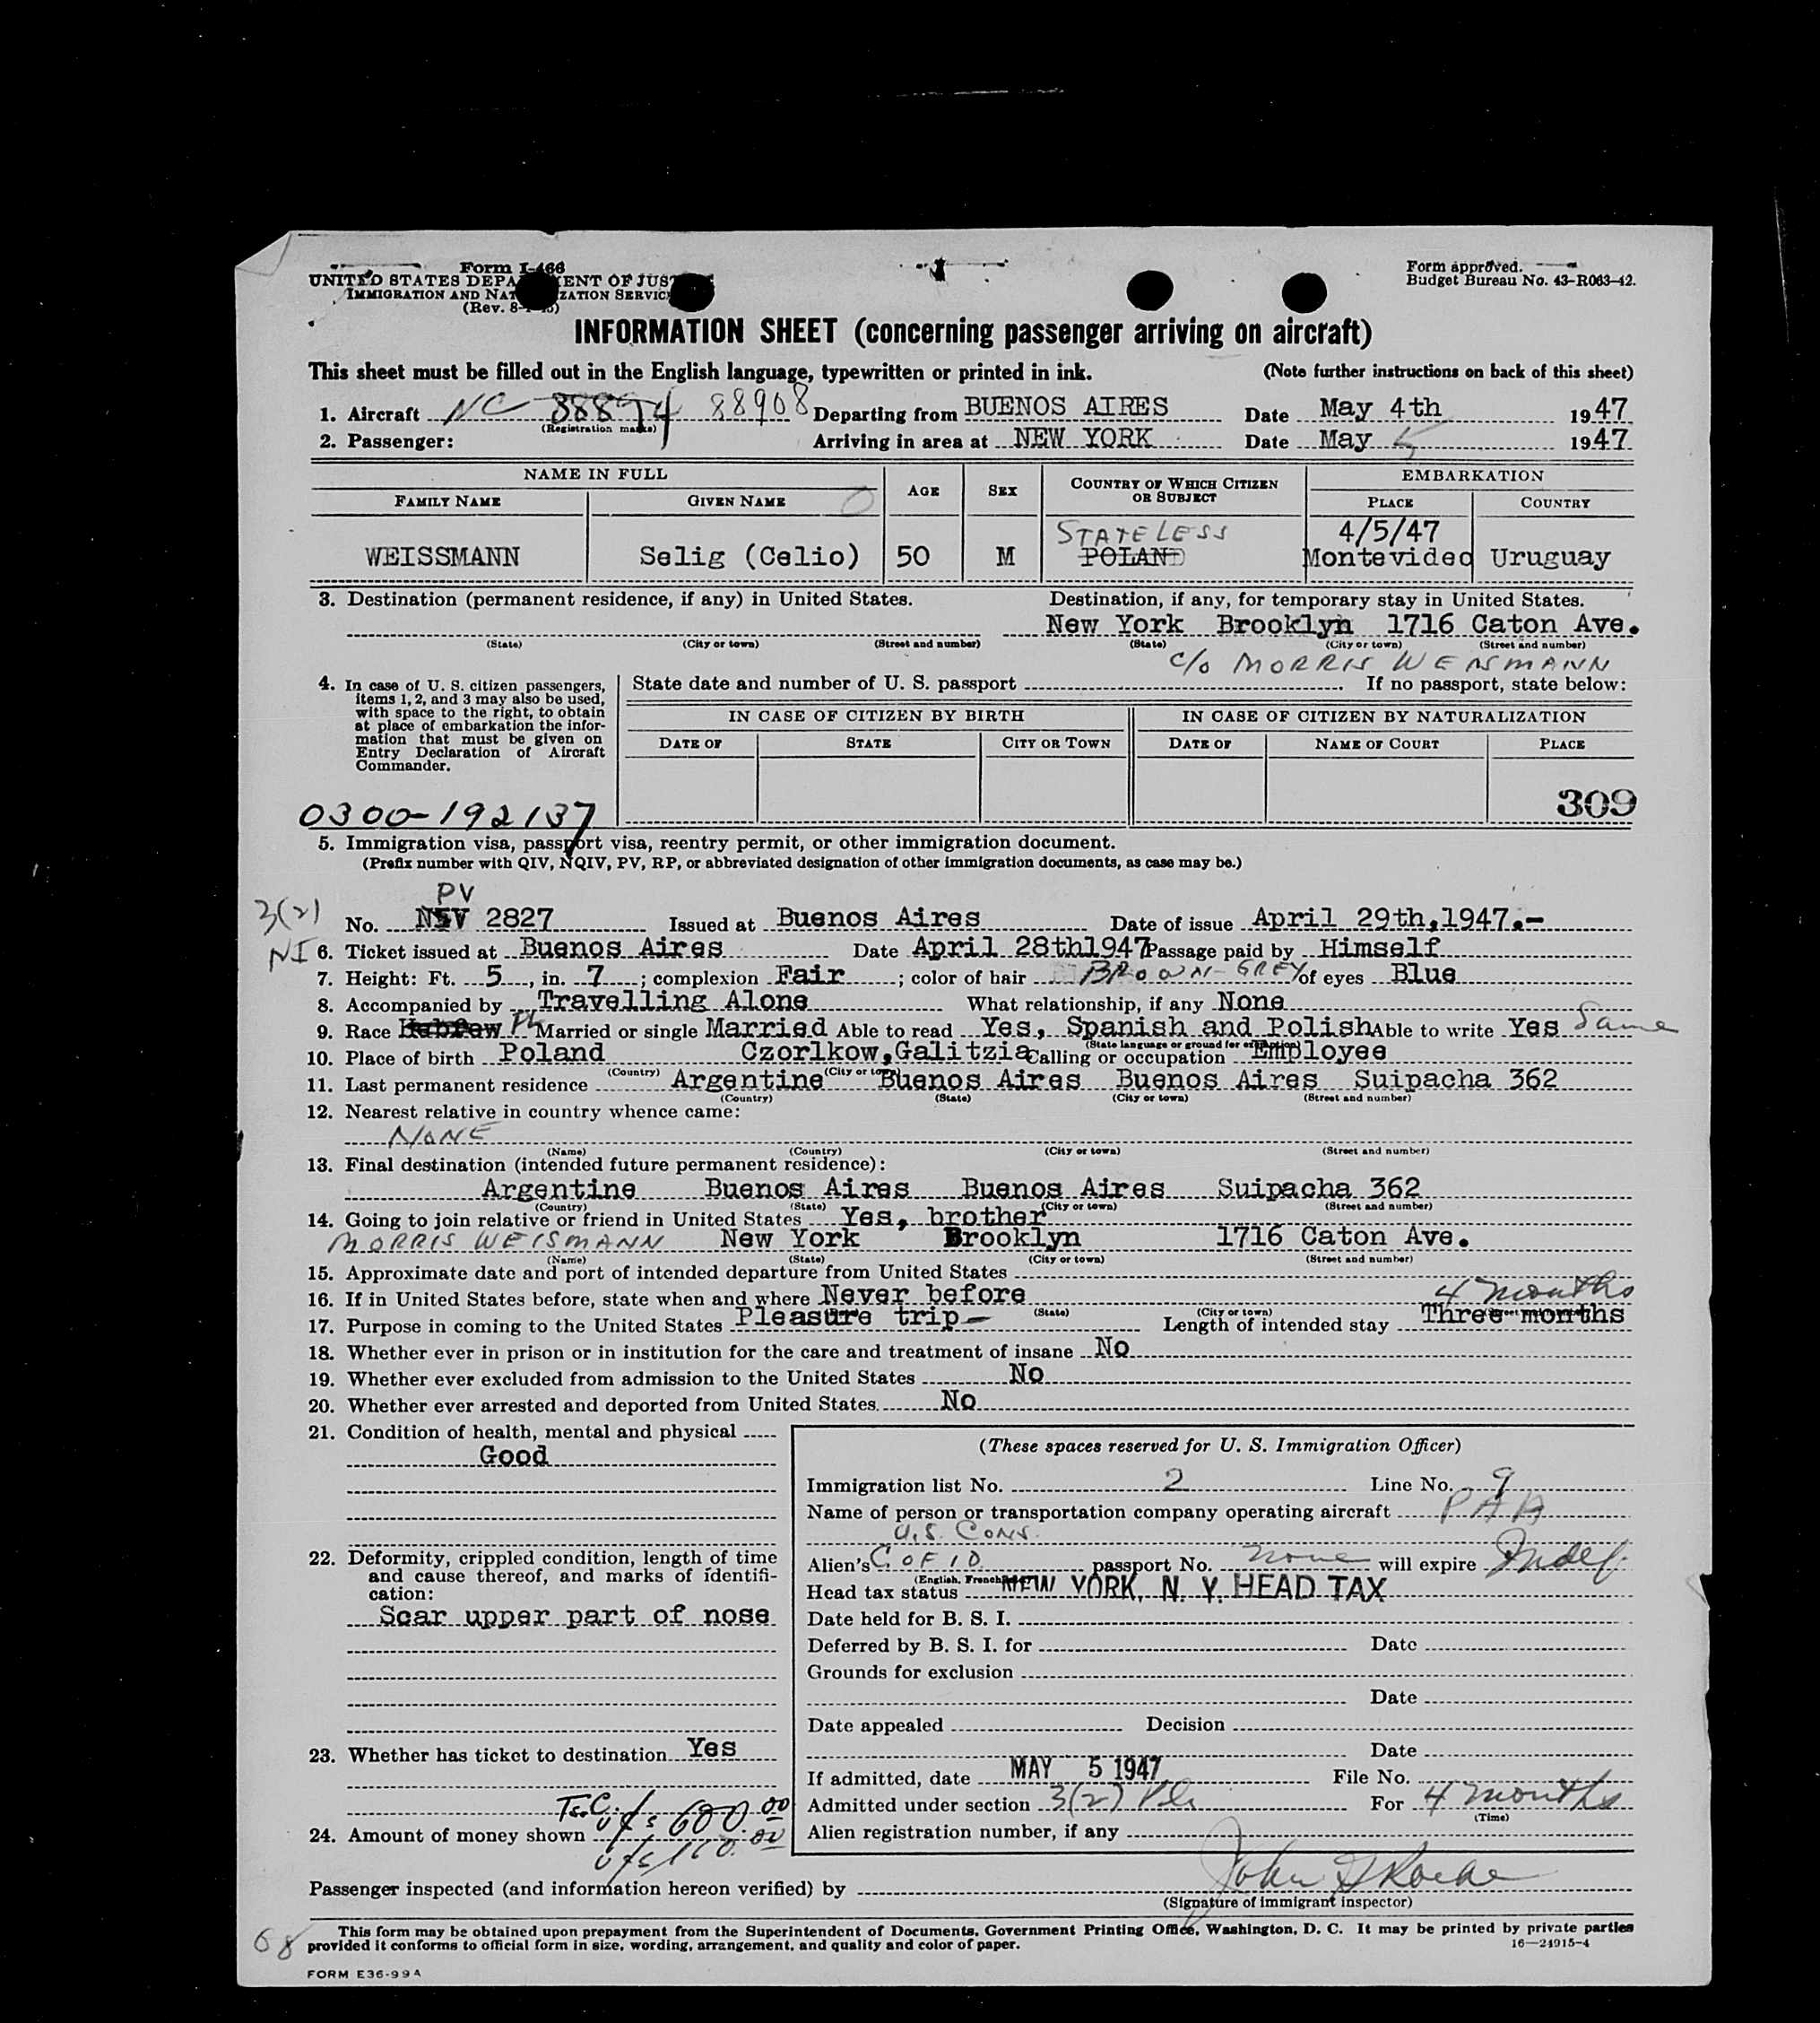 Form I-466
UNITED STATES DEPA ENT OF JUS
IMMIGRATION AND NAT IZATION SERVIC
(Rev. 8-
Form approved.
Budget Bureau No. 43-R063-42.
INFORMATION SHEET (concerning passenger arriving on aircraft)
This sheet must be filled out in the English language, typewritten or printed in ink. (Note further instructions on back of this sheet)
1. Aircraft NC 88894 88908 Departing from BUENOS AIRES Date May 4th 1947
(Registration marks)
2. Passenger: Arriving in area at NEW YORK Date May 5 1947
NAME IN FULL AGE SEX COUNTRY OF WHICH CITIZEN OR SUBJECT EMBARKATION
FAMILY NAME GIVEN NAME PLACE COUNTRY
STATELESS 4/5/47
WEISSMANN Selig (Celio) 50 M POLAND Montevideo Uruguay
3. Destination (permanent residence, if any) in United States. Destination, if any, for temporary stay in United States.
New York Brooklyn 1716 Caton Ave.
(State) (City or town) (Street and number) (State) (City or town) (Street and number)
c/o MORRIS WEISMANN
4. In case of U. S. citizen passengers, items 1, 2, and 3 may also be used, with space to the right, to obtain at place of embarkation the information that must be given on Entry Declaration of Aircraft Commander.
State date and number of U. S. passport If no passport, state below:
IN CASE OF CITIZEN BY BIRTH IN CASE OF CITIZEN BY NATURALIZATION
DATE OF STATE CITY OR TOWN DATE OF NAME OF COURT PLACE
309
0300-192137
5. Immigration visa, passport visa, reentry permit, or other immigration document.
(Prefix number with QIV, NQIV, PV, RP, or abbreviated designation of other immigration documents, as case may be.)
PV
3(2)
No. NIV 2827 Issued at Buenos Aires Date of issue April 29th,1947.-
NI
6. Ticket issued at Buenos Aires Date April 28th1947 Passage paid by Himself
7. Height: Ft. 5, in. 7; complexion Fair; color of hair BROWN-GREY of eyes Blue
8. Accompanied by Travelling Alone What relationship, if any None
9. Race Hebrew PL Married or single Married Able to read Yes, Spanish and Polish Able to write Yes Same
(State language or ground for exemption)
10. Place of birth Poland Czorlkow,Galitzia Calling or occupation Employee
(Country) (City or town)
11. Last permanent residence Argentine Buenos Aires Buenos Aires Suipacha 362
(Country) (State) (City or town) (Street and number)
12. Nearest relative in country whence came:
NONE
(Name) (Country) (City or town) (Street and number)
13. Final destination (intended future permanent residence):
Argentine Buenos Aires Buenos Aires Suipacha 362
(Country) (State) (City or town) (Street and number)
14. Going to join relative or friend in United States Yes, brother
MORRIS WEISMANN New York Brooklyn 1716 Caton Ave.
(Name) (State) (City or town) (Street and number)
15. Approximate date and port of intended departure from United States
16. If in United States before, state when and where Never before 4 months
(State) (City or town) (Street and number)
17. Purpose in coming to the United States Pleasure trip- Length of intended stay Three months
18. Whether ever in prison or in institution for the care and treatment of insane No
19. Whether ever excluded from admission to the United States No
20. Whether ever arrested and deported from United States No
21. Condition of health, mental and physical
Good
22. Deformity, crippled condition, length of time and cause thereof, and marks of identification:
Scar upper part of nose
23. Whether has ticket to destination Yes
T.C. u/s 600.00
24. Amount of money shown
u/s 110.00
(These spaces reserved for U. S. Immigration Officer)
Immigration list No. 2 Line No. 9
Name of person or transportation company operating aircraft PAA
U.S. CONS.
Alien's C OF ID passport No. none will expire Indef.
(English, French
Head tax status NEW YORK, N. Y. HEAD TAX
Date held for B. S. I.
Deferred by B. S. I. for Date
Grounds for exclusion
Date
Date appealed Decision
Date
If admitted, date MAY 5 1947 File No.
Admitted under section 3(2) For 4 months
(Time)
Alien registration number, if any
Passenger inspected (and information hereon verified) by John
(Signature of immigrant inspector)
68
This form may be obtained upon prepayment from the Superintendent of Documents, Government Printing Office, Washington, D. C. It may be printed by private parties
provided it conforms to official form in size, wording, arrangement, and quality and color of paper.
16—24915-4
FORM E36-99A